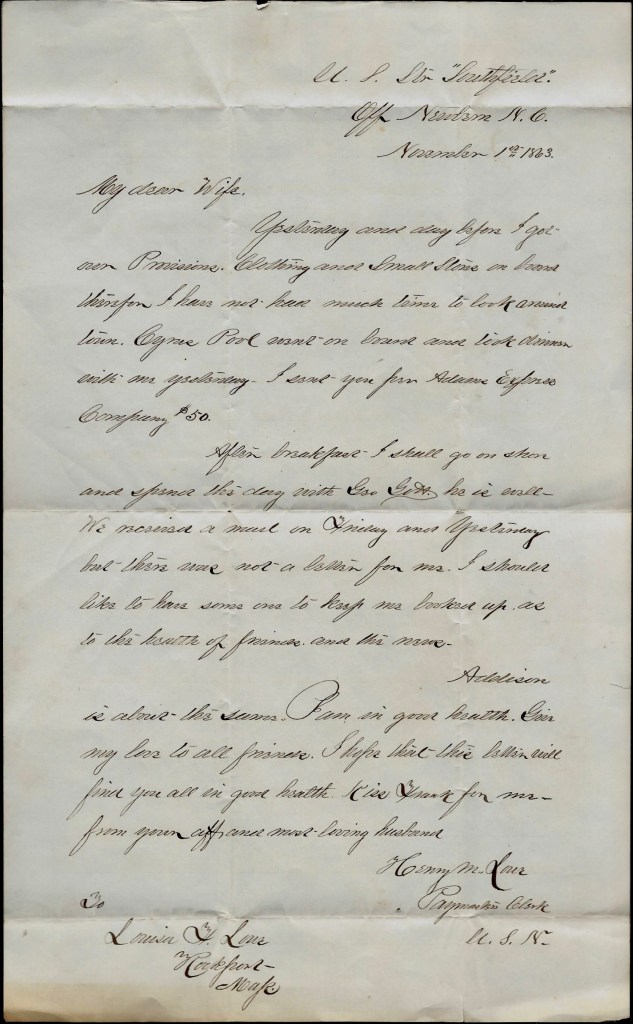 U. S. Str "Southfield".
Off Newbern N. C.
November 1st 1863.
My dear Wife.
Yesterday and day before I got
our Provisions. Clothing and Small Stores on board
therefore I have not had much time to look around
town. Cyrus Pool went on board and took dinner
with me yesterday - I sent you per Adams Express
Company $50.
After breakfast I shall go on shore
and spend the day with Geo Gott. he is well -
We received a mail on Friday and Yesterday
but there was not a letter for me. I should
like to have some one to keep me booked up. as
to the health of friends. and the news -
Addison
is about the same. I am in good health. Give
my love to all friends. I hope that this letter will
find you all in good health. Kiss Frank for me -
from your aff and most loving husband
Henry M. Lowe
Paymasters Clerk
U. S. N -
To
Louisa F. Lowe
Rockport -
Mass.